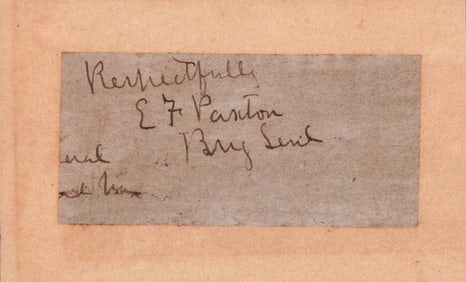 Respectfully
E F Paxton
Brig Genl
eral